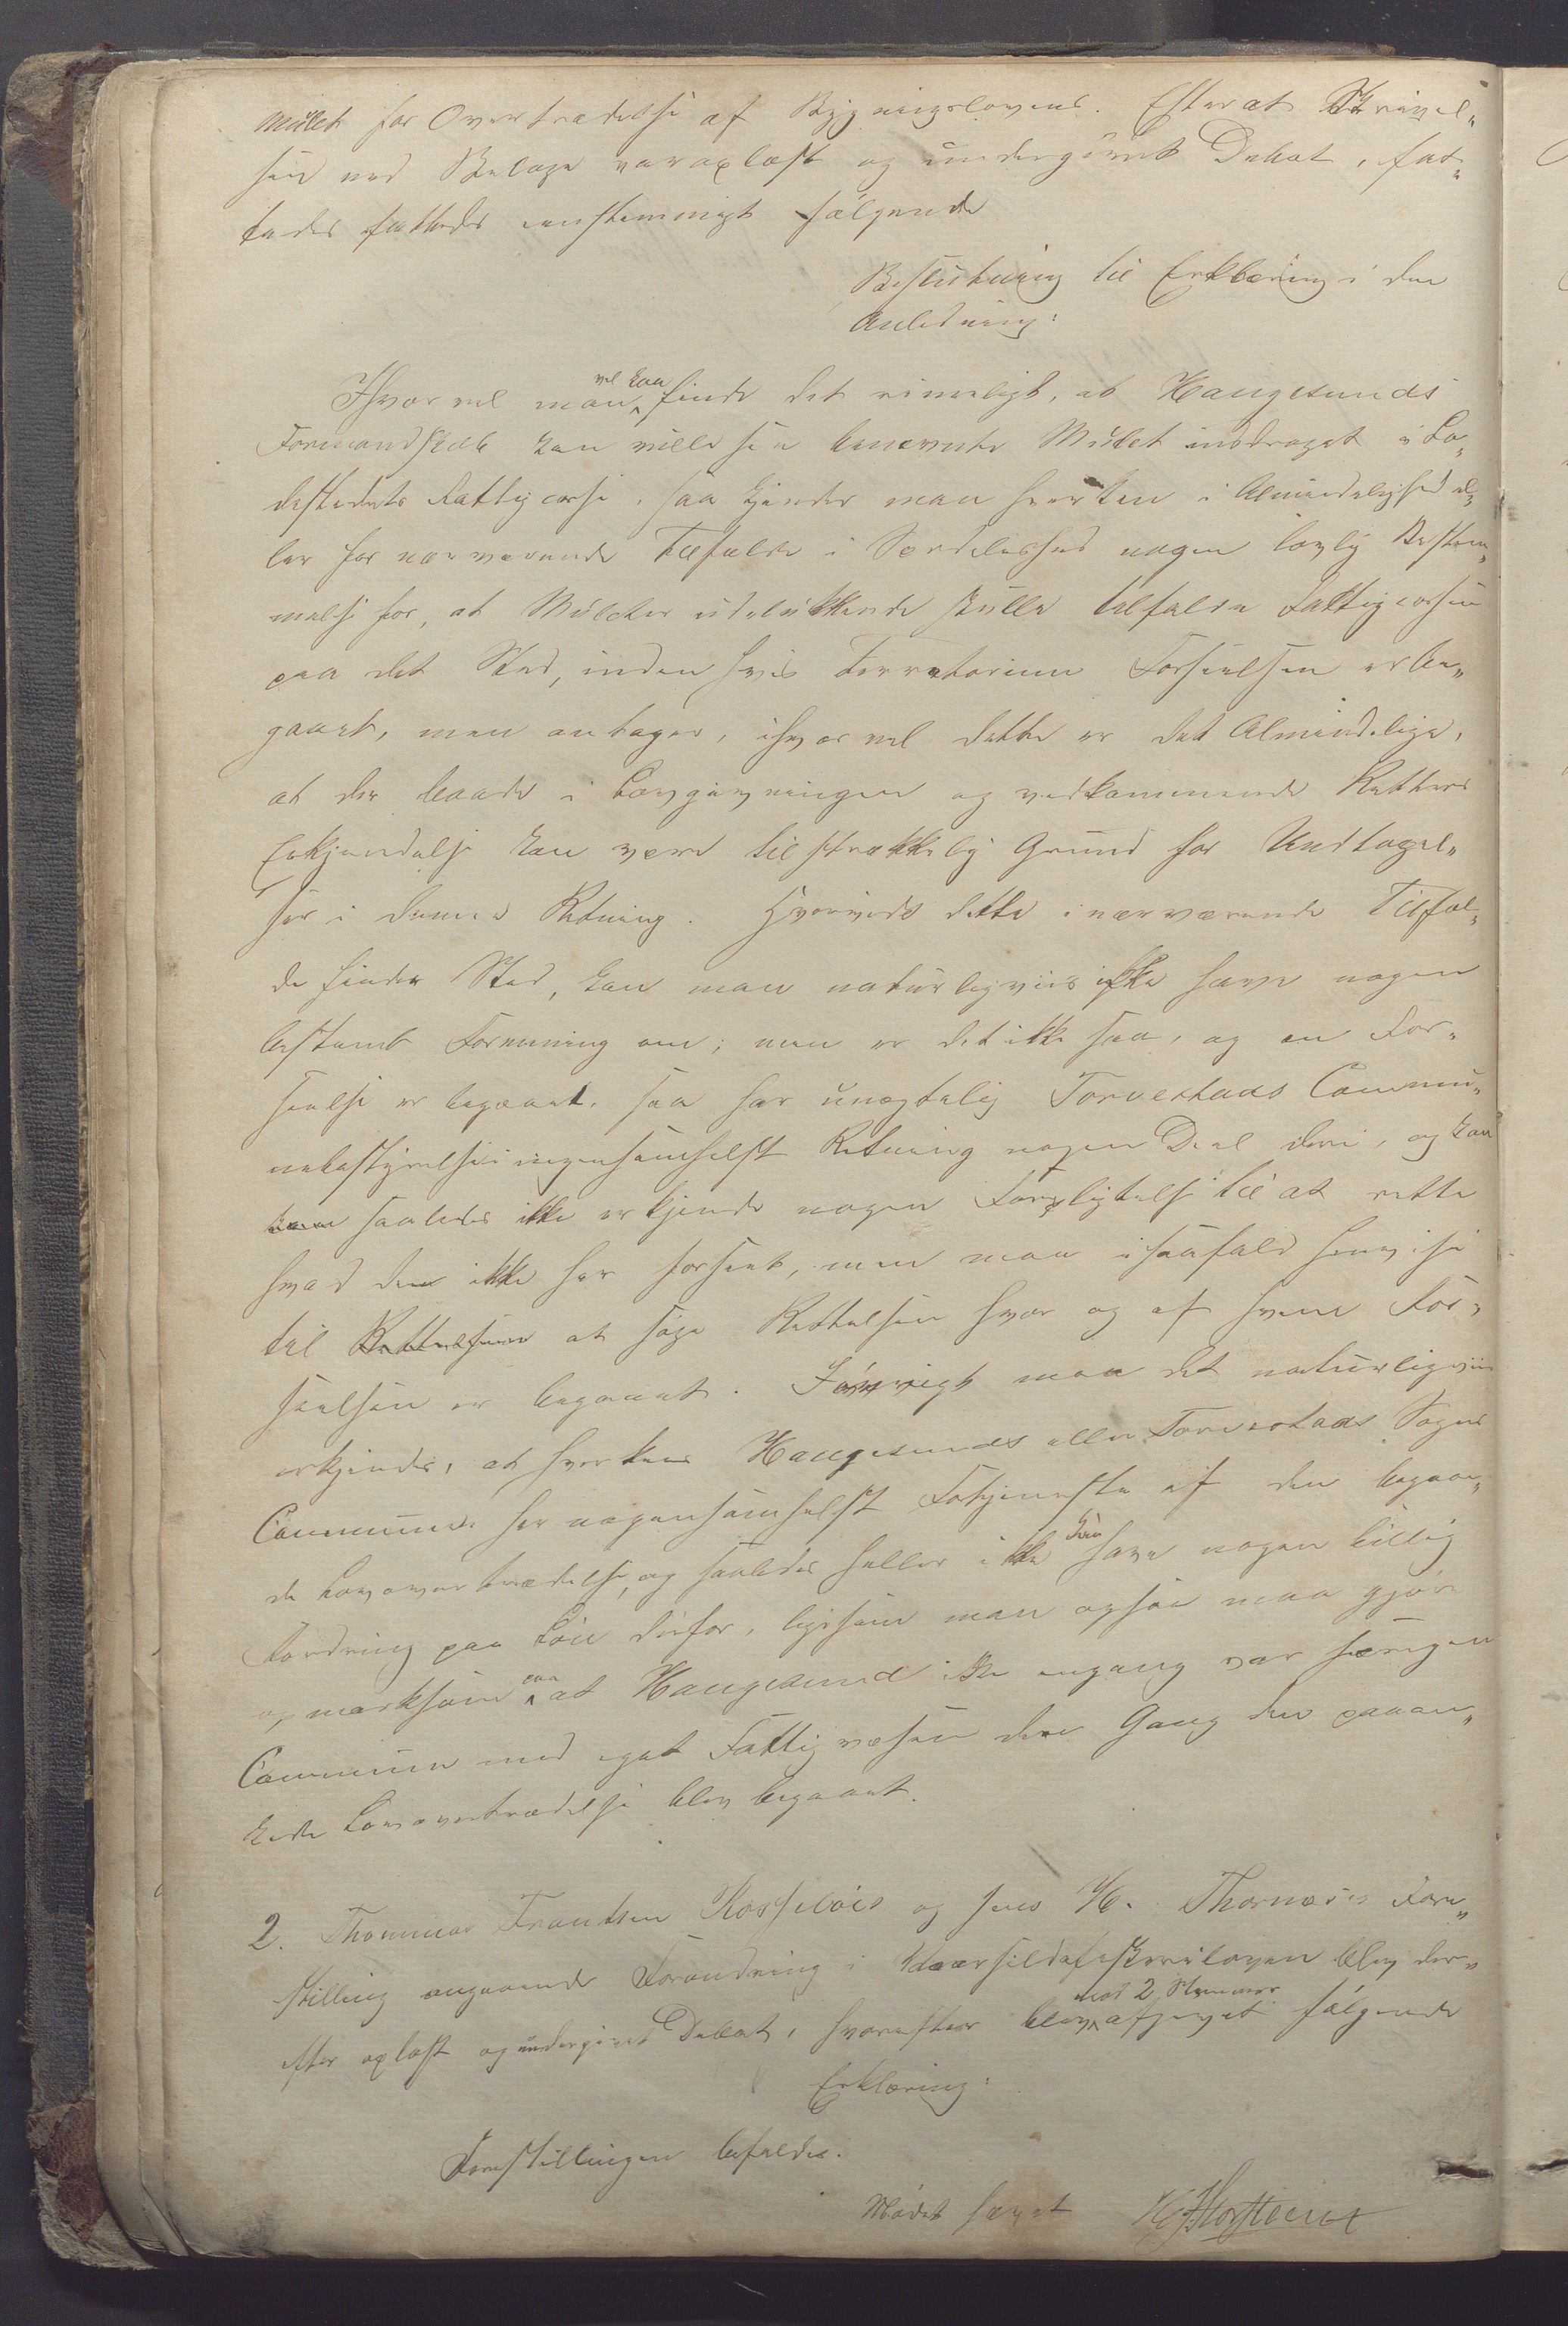 Mulct for Overtrædelse af Bygningsloven. Efterat Skrivel„
sen med Bilage var oplæst og undergivet Debat, fat„
tedes fattedes enstemmigt følgende
Beslutning til Erklæring i den
Anledning:
Ihvorvel man vel kan finde det rimeligt, at Haugesunds
Formandskab kan ville see benævnte Mulct inddraget i La„
destedets Fattigcasse, saa kjender man hverken i Almindelighed el„
ler for nærværende Tilfælde i Særdeleshed nogen lovlig Bestem„
melse for, at Mulcter udelukkende skulle tilfalde Fattigcassen
paa det Sted, inden hvis Territorium Forseelsen er be„
gaaet, men antager, ihvorvel dette er det Almindelige,
at der baade i Lovgivningen og vedkommende Retters
Erkjendelse kan være tilstrækkelig Grund for Undtagel„
ser i denne Retning. Hvorvidt dette i nærværende Tilfæl„
de finder Sted, kan man naturligviis ikke have nogen
bestemt Formening om; men er det ikke saa, og en For„
seelse er begaaet, saa har unægtelig Torvestads Commu„
nebestyrelse i ingensomhelst Retning nogen Deel deri, og kan
kan saaledes ikke erkjende nogen Forpligtelse til at rette
hvad den ikke har forseet, men maa isaafald henvise
til Rettelsen at søge Rettelsen hvor og af hvem For„
seelsen er begaaet. Forøvrigt maa det naturligviis
erkjendes, at hverken Haugesunds eller Torvestads Sogns
Commune har nogensomhelst Fortjeneste af den begaae„
de Lovovertrædelse, og saaledes heller ikke kan have nogen billig
Fordring paa Løn derfor, ligesom man ogsaa maa gjøre
opmærksom paa at Haugesund ikke engang var særegen
Commune med eget Fattigvæsen den Gang den paaan„
kede Lovovertrædelse blev begaaet.
2. Thommas Frantsen og Jens H. Thornæs's Fore„
stilling angaaende Forandring i Vaarsildefiskeriloven blev der„
efter oplæst og undergivet Debat, hvorefter blev mod 2 Stemmer afgivet følgende
Erklæring:
Forestillingen bifaldes.
Mødet hævet